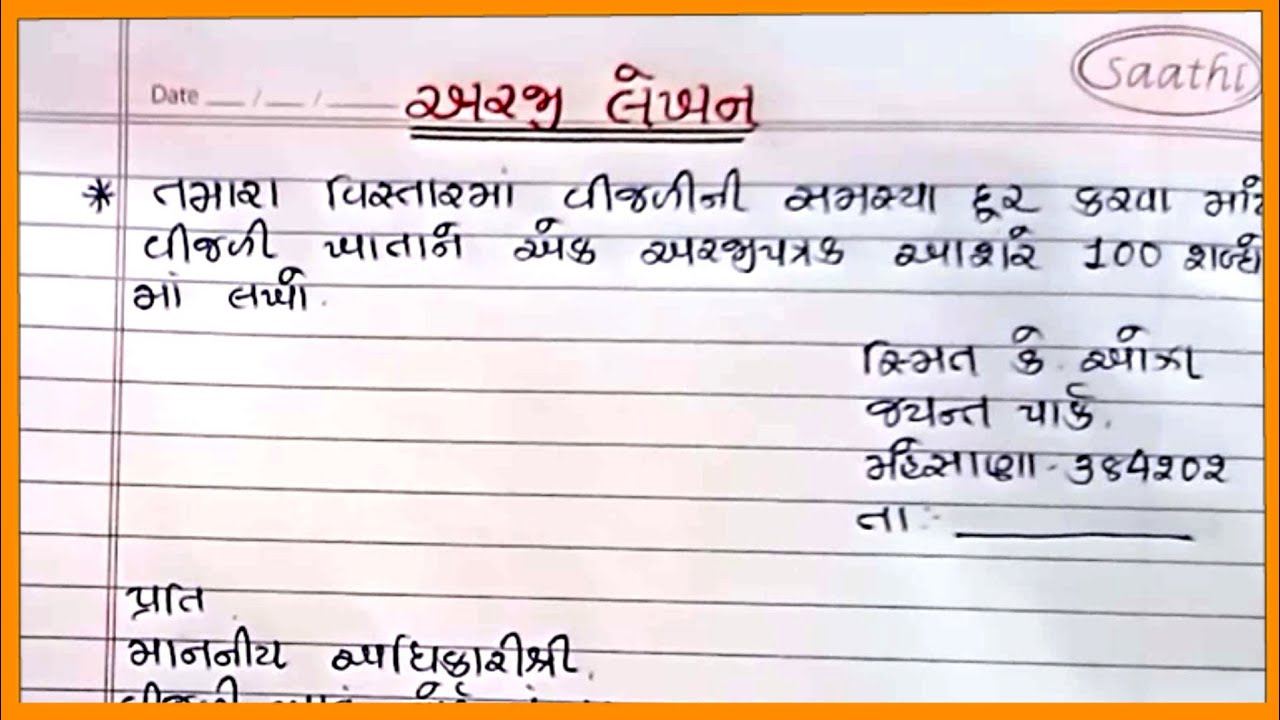 Saathi
Date __/__/____
અરજી લેખન
* તમારા વિસ્તારમાં વીજળીની સમસ્યા દૂર કરવા માટે
વીજળી ખાતાને એક અરજીપત્રક આશરે 100 શબ્દો
માં લખો.
સ્મિત કે. ઓઝા
જયન્ત પાર્ક.
મહેસાણા - ૩84૨૦૨
તા :- ________
પ્રતિ
માનનીય અધિકારીશ્રી.
વીજળી